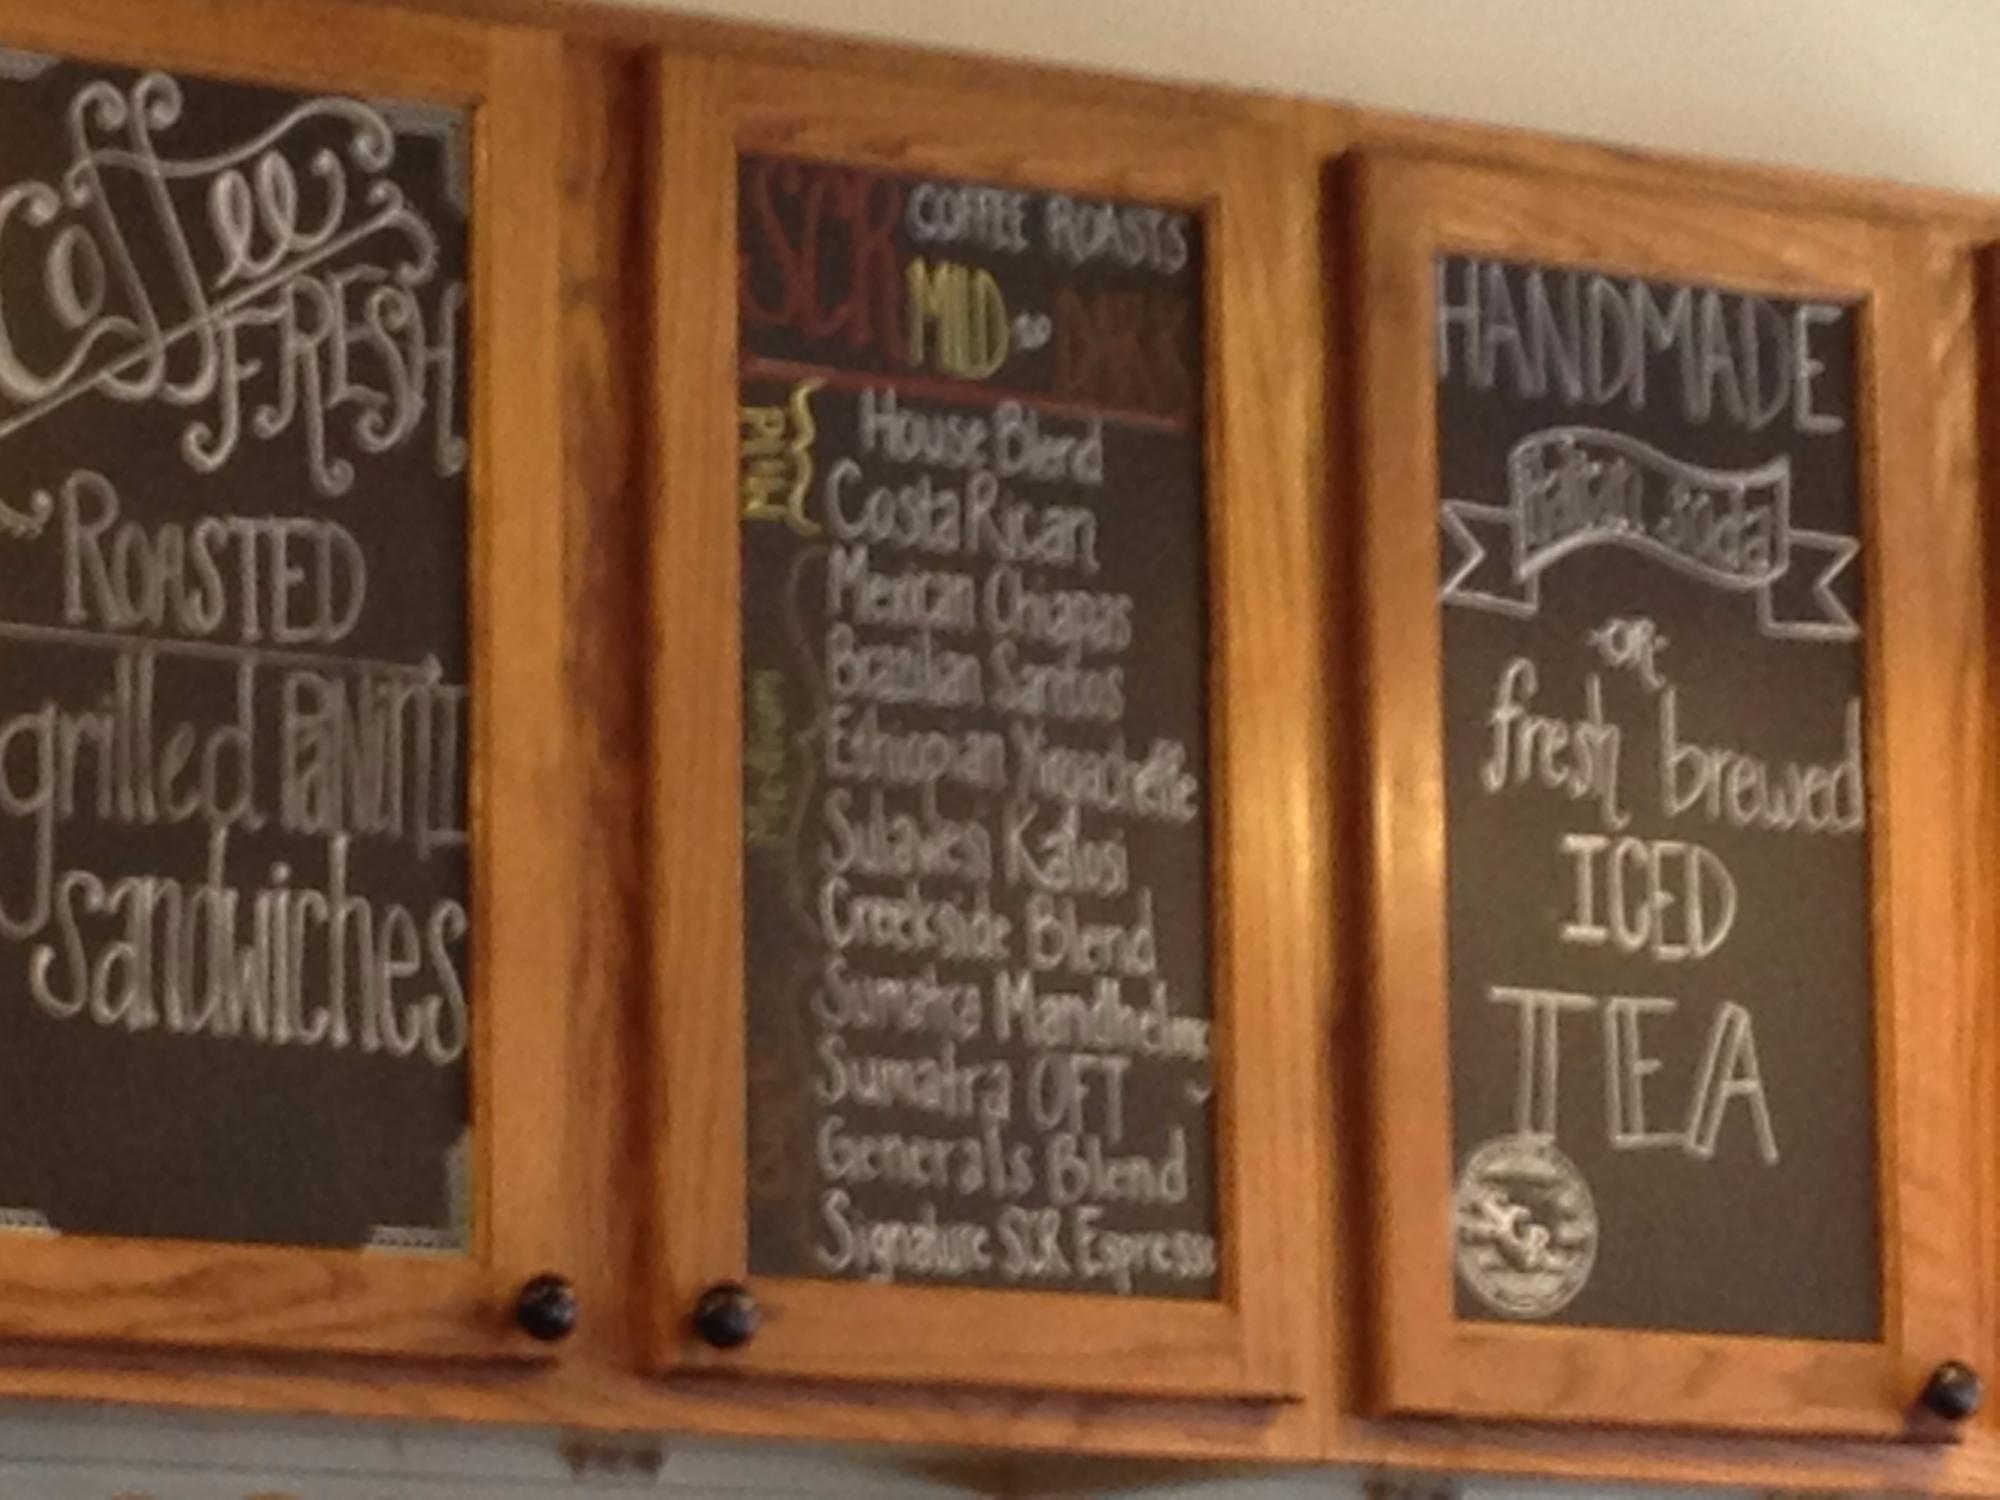 Coffee
FRESH
ROASTED
grilled PANINI
sandwiches
SCR COFFEE ROASTS
MILD to DARK
MILD
House Blend
Costa Rican
Mexican Chiapas
Brazilian Santos
Medium
Ethiopian Yirgacheffe
Sulawesi Kalosi
Creekside Blend
Sumatra Mandheling
Sumatra OFT
Generals Blend
Signature SCR Espresso
HANDMADE
Italian soda
-OR-
fresh brewed
ICED
TEA
SCR